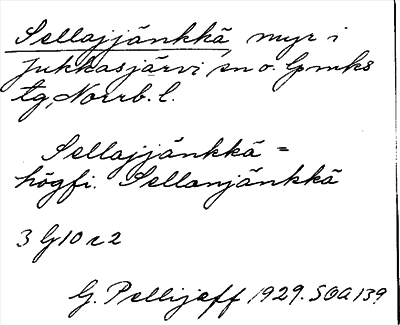 Sellajjänkkä, myr i
Jukkasjärvi sn o. lpmks
tg, Norrb. l.
Sellajjänkkä =
högfi. Sellanjänkkä
3 G10 c2
G. Pellijeff 1929. SOA 139